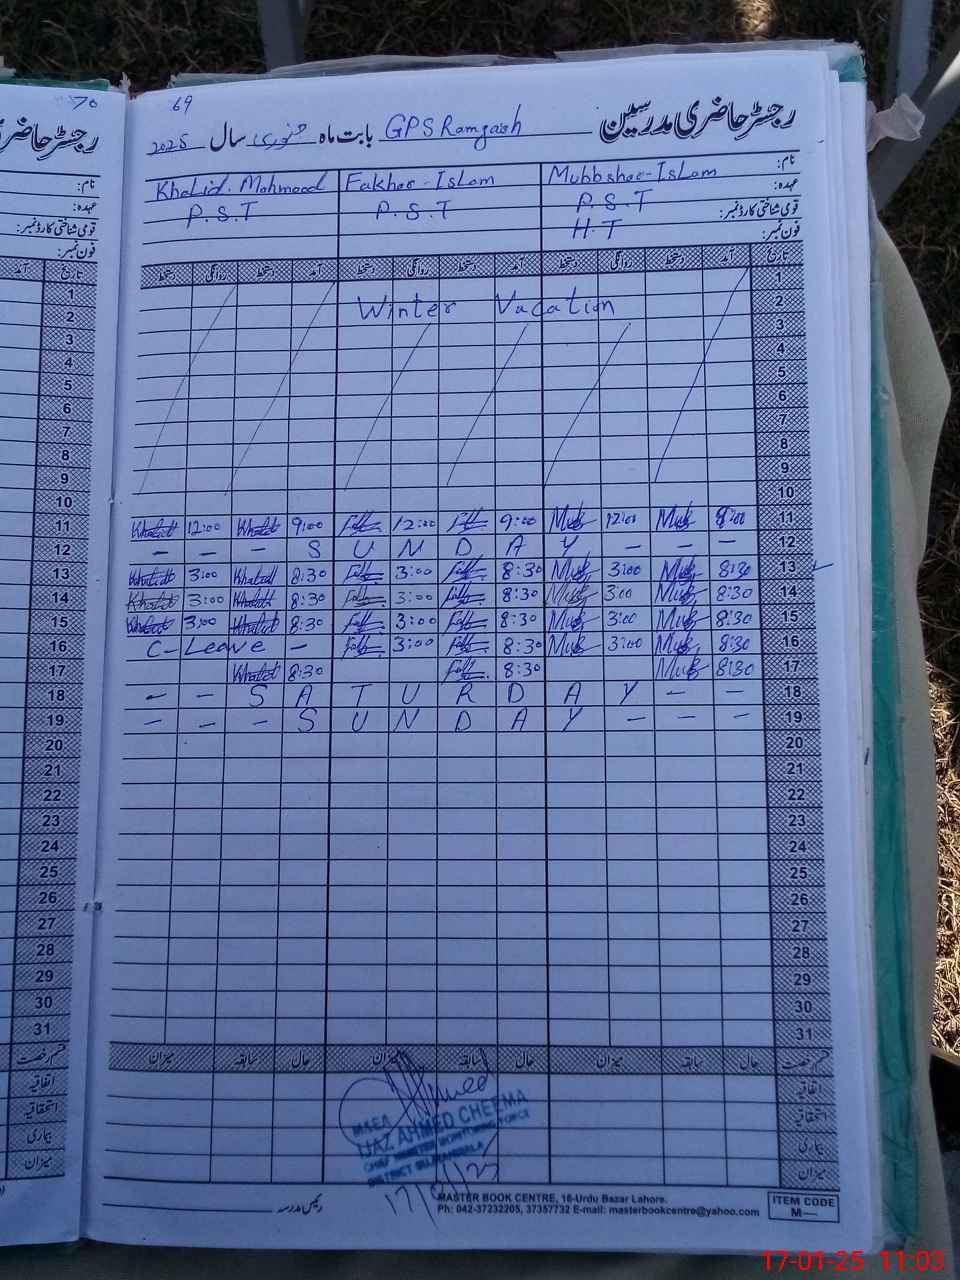 70
69
رجسٹر حاضری مدرسین
بابت ماہ GPS Ramgarh جنوری سال 2025
نام: Mubbsher-Islam Fakher-Islam Khalid Mahmood
عہدہ: P.S.T P.S.T P.S.T
قومی شناختی کارڈ نمبر: H.T
فون نمبر:
تاریخ آمد دستخط روانگی دستخط آمد دستخط روانگی دستخط آمد دستخط روانگی دستخط
1
2 Winter Vacation
3
4
5
6
7
8
9
10
Khalid 12:00 Khalid 9:00 12:00 9:00 Mub 12:00 Mub 9:00 11
- - - S U N D A Y - - - 12
Khalid 3:00 Khalid 8:30 3:00 8:30 Mub 3:00 Mub 8:30 13
Khalid 3:00 Khalid 8:30 3:00 8:30 Mub 3:00 Mub 8:30 14
Khalid 3:00 Khalid 8:30 3:00 8:30 Mub 3:00 Mub 8:30 15
C-Leave - 3:00 8:30 Mub 3:00 Mub 8:30 16
Khalid 8:30 8:30 Mub 8:30 17
- - S A T U R D A Y - - 18
- - - S U N D A Y - - - 19
20
21
22
23
24
25
26
27
28
29
30
31
قسم رخصت حال سابقہ میزان حال سابقہ میزان حال سابقہ میزان
اتفاقیہ
استحقاقیہ
بیماری
میزان
Ahmed
M&EA
IJAZ AHMED CHEEMA
CHIEF MINISTER MONITORING FORCE
DISTRICT GUJRANWALA
17/01/25
رئیس مدرسہ
MASTER BOOK CENTRE, 16-Urdu Bazar Lahore.
Ph: 042-37232205, 37357732 E-mail: masterbookcentre@yahoo.com
ITEM CODE
M—
17-01-25 11:03